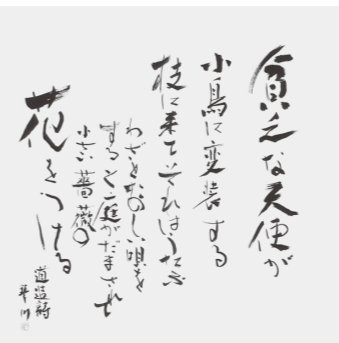 貧乏な天使が
小鳥に変装する
枝に来て それはうたふ
わざとたのしい唄を
すると庭がだまされて
小さい薔薇の
花をつける
道造詩